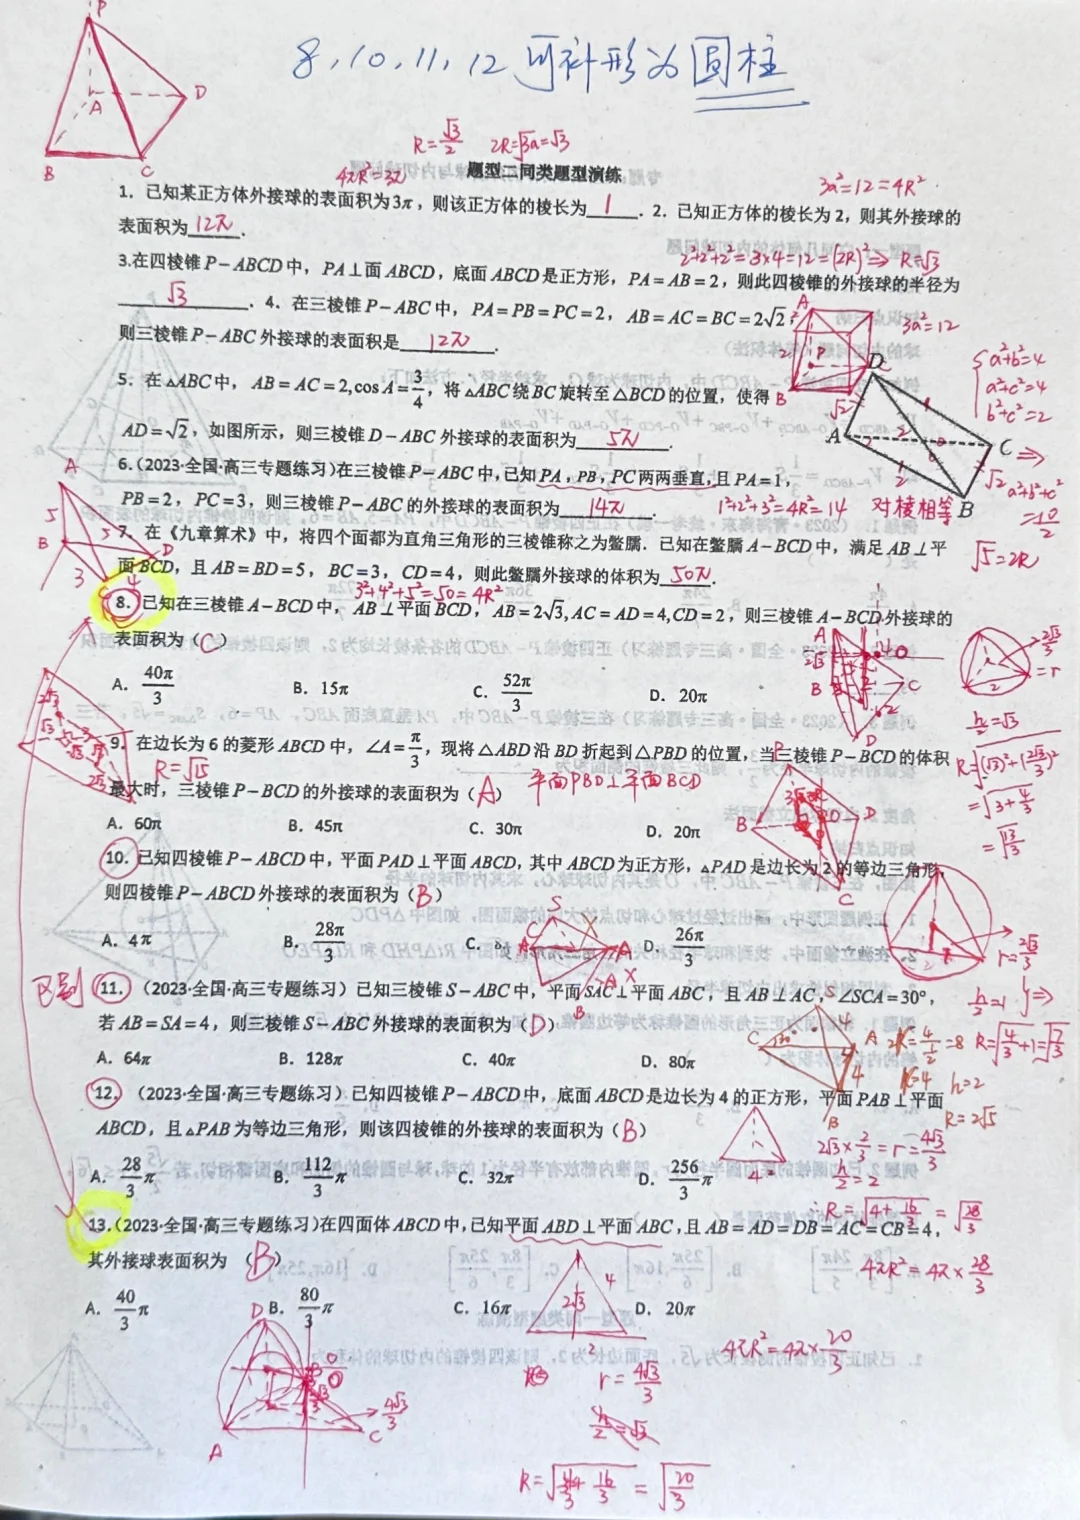 P
A
D
B
C
8,10,11,12 可补形为圆柱
R=√3/2 2R=√3a=√3
4πR²=3π
题型二同类题型演练
3a²=12=4R²
1. 已知某正方体外接球的表面积为3π，则该正方体的棱长为 1 . 2. 已知正方体的棱长为2，则其外接球的
表面积为 12π .
2²+2²+2²=3×4=12=(2R)²⇒R=√3
3.在四棱锥P-ABCD中，PA⊥面ABCD，底面ABCD是正方形，PA=AB=2，则此四棱锥的外接球的半径为
√3 . 4. 在三棱锥P-ABC中，PA=PB=PC=2，AB=AC=BC=2√2，
3a²=12
则三棱锥P-ABC外接球的表面积是 12π .
a²+b²=4
a²+c²=4
b²+c²=2
5. 在△ABC中，AB=AC=2,cosA=3/4，将△ABC绕BC旋转至△BCD的位置，使得
AD=√2，如图所示，则三棱锥D-ABC外接球的表面积为 5π .
⇒
a²+b²+c²
=10/2
√5=2R
6.(2023·全国·高三专题练习)在三棱锥P-ABC中,已知PA,PB,PC两两垂直,且PA=1,
PB=2，PC=3，则三棱锥P-ABC的外接球的表面积为 14π .
1²+2²+3²=4R²=14 对棱相等
7. 在《九章算术》中，将四个面都为直角三角形的三棱锥称之为鳖臑．已知在鳖臑A-BCD中，满足AB⊥平
面BCD，且AB=BD=5，BC=3，CD=4，则此鳖臑外接球的体积为 50π .
3²+4²+5²=50=4R²
8. 已知在三棱锥A-BCD中，AB⊥平面BCD，AB=2√3,AC=AD=4,CD=2，则三棱锥A-BCD外接球的
表面积为（C）
A. 40π/3 B. 15π C. 52π/3 D. 20π
2√3/3=r
h/2=√3
R=√((√3)²+(2√3/3)²)
=√(3+4/3)
=√(13/3)
9. 在边长为6的菱形ABCD中，∠A=π/3，现将△ABD沿BD折起到△PBD的位置，当三棱锥P-BCD的体积
R=√15
最大时，三棱锥P-BCD的外接球的表面积为（A） 平面PBD⊥平面BCD
A. 60π B. 45π C. 30π D. 20π
10. 已知四棱锥P-ABCD中，平面PAD⊥平面ABCD，其中ABCD为正方形，△PAD是边长为2的等边三角形，
则四棱锥P-ABCD外接球的表面积为（B）
A. 4π B. 28π/3 C. D. 26π/3
r=2√3/3
h/2=1
⇒
R=√(4/3+1)=√(7/3)
区别
11. (2023·全国·高三专题练习) 已知三棱锥S-ABC中，平面SAC⊥平面ABC，且AB⊥AC，∠SCA=30°，
若AB=SA=4，则三棱锥S-ABC外接球的表面积为（D）
A. 64π B. 128π C. 40π D. 80π
h=2
R=2√5
12. (2023·全国·高三专题练习) 已知四棱锥P-ABCD中，底面ABCD是边长为4的正方形，平面PAB⊥平面
ABCD，且△PAB为等边三角形，则该四棱锥的外接球的表面积为（B）
2√3×2/3=r=4√3/3
h/2=2
A. 28/3π B. 112/3π C. 32π D. 256/3π
R=√(4+16/3)=√(28/3)
13.(2023·全国·高三专题练习)在四面体ABCD中,已知平面ABD⊥平面ABC,且AB=AD=DB=AC=CB=4，
其外接球表面积为 （B）
4πR²=4π×28/3
A. 40/3π B. 80/3π C. 16π D. 20π
4πR²=4π×20/3
r=4√3/3
R= =√(20/3)